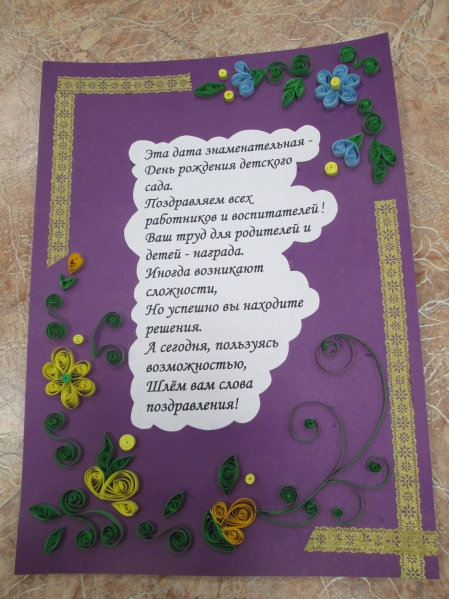 Эта дата знаменательная -
День рождения детского
сада.
Поздравляем всех
работников и воспитателей!
Ваш труд для родителей и
детей - награда.
Иногда возникают
сложности,
Но успешно вы находите
решения.
А сегодня, пользуясь
возможностью,
Шлём вам слова
поздравления!